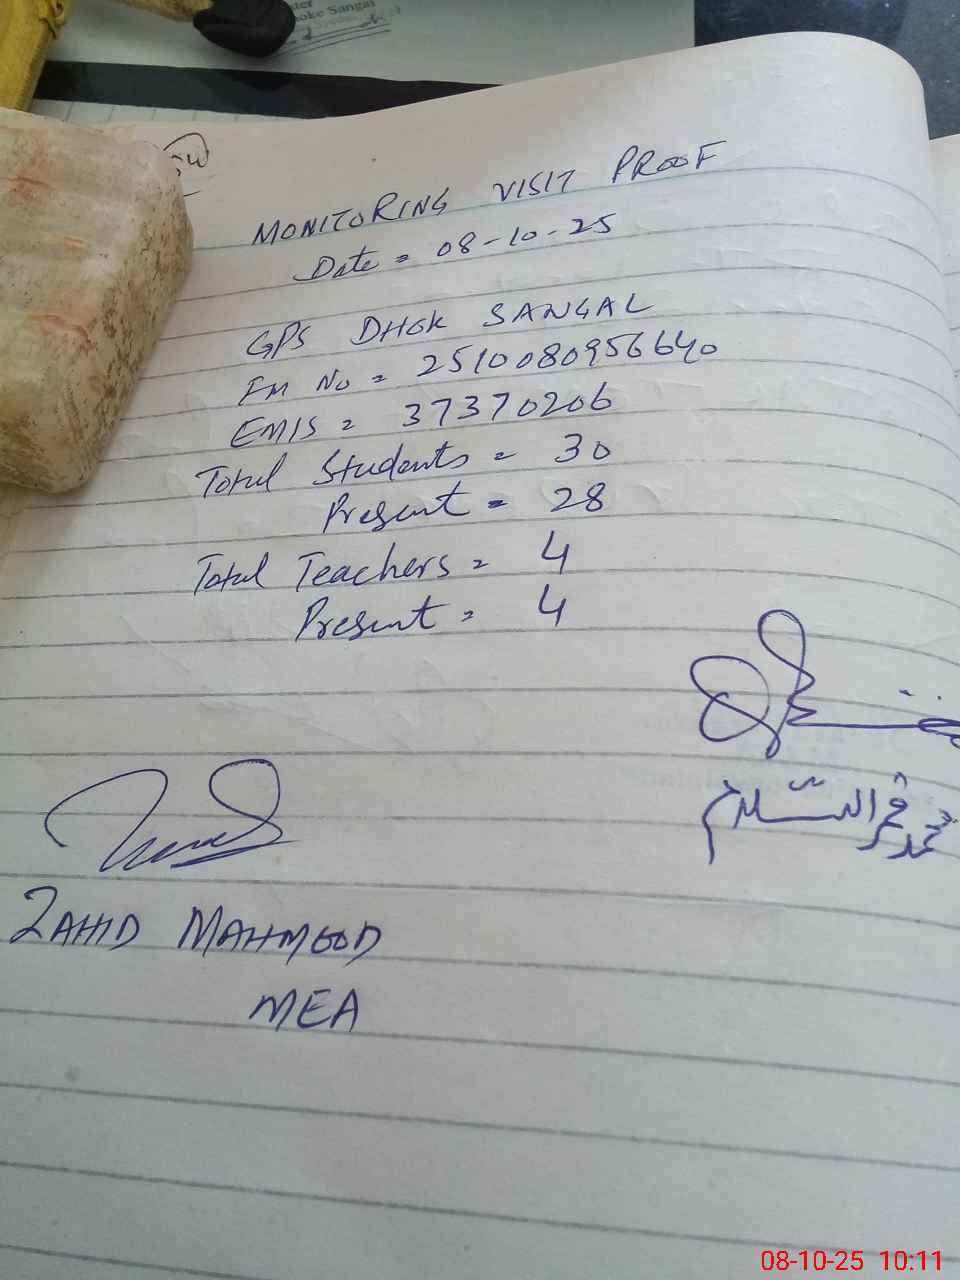 MONITORING VISIT PROOF
Date = 08-10-25
GPS DHOK SANGAL
FM No = 2510080956640
EMIS = 37370206
Total Students = 30
Present = 28
Total Teachers = 4
Present = 4
محمد فخر السلام
ZAHID MAHMOOD
MEA
08-10-25 10:11